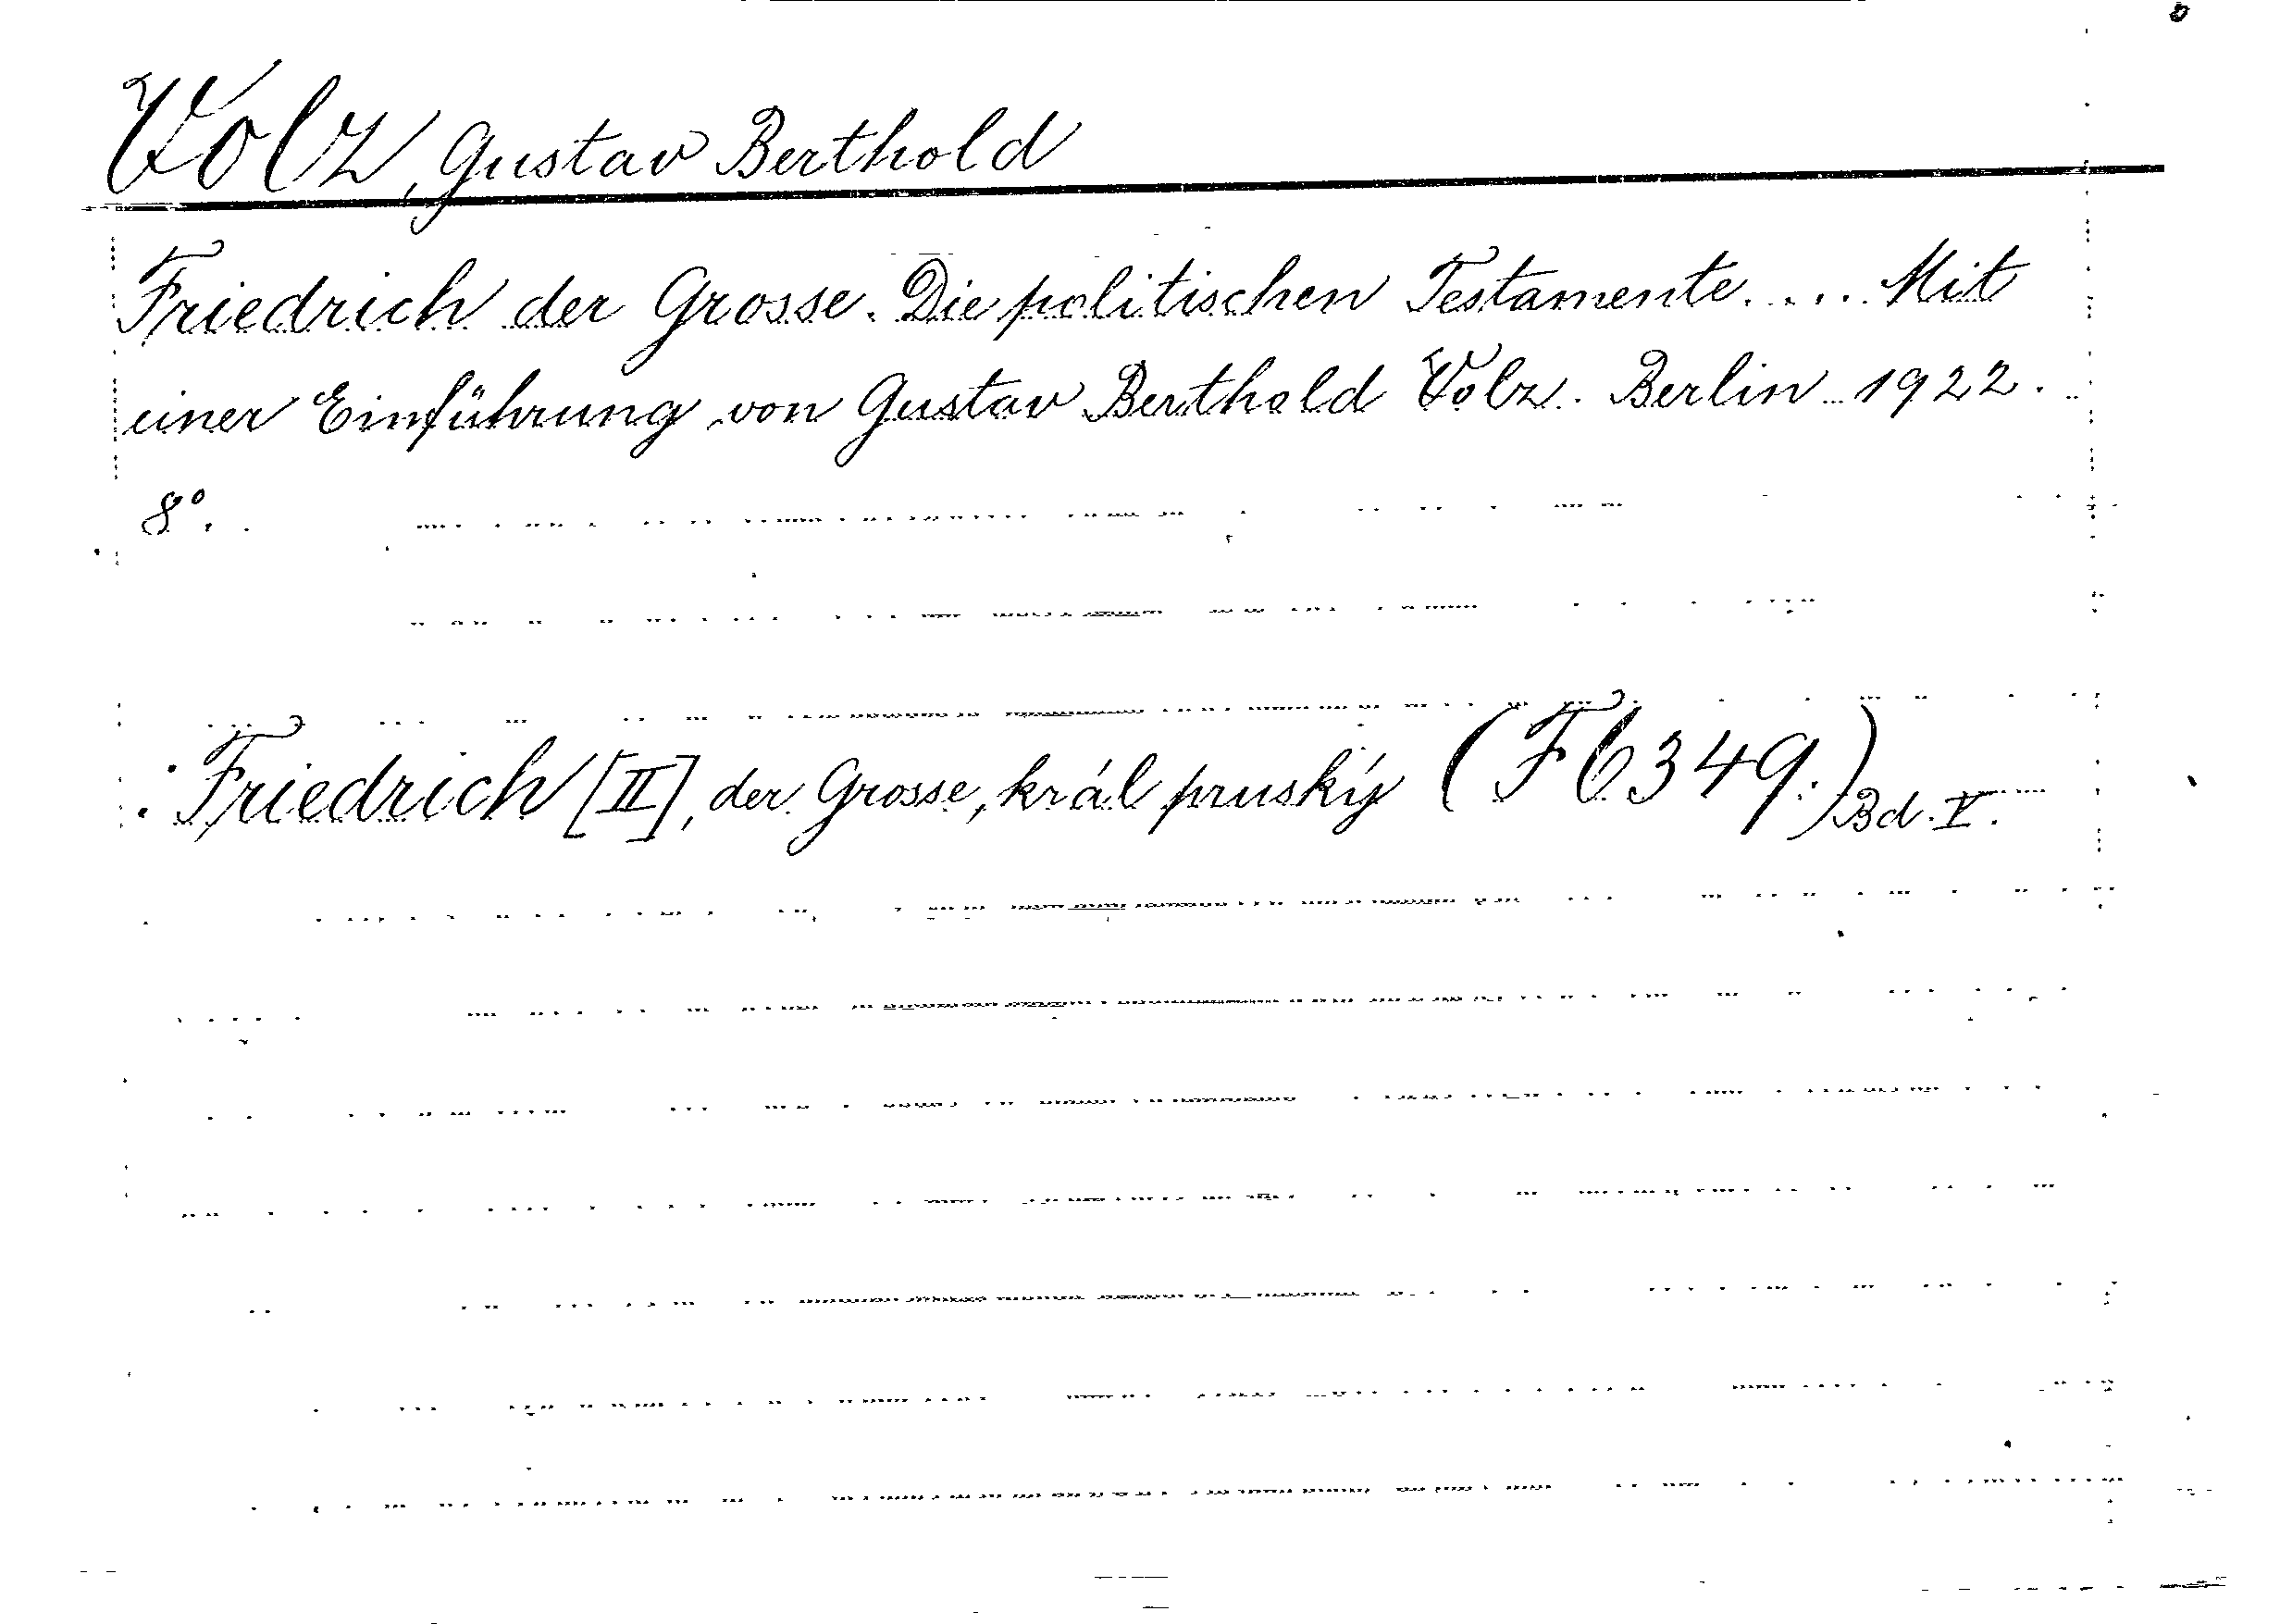 Volz, Gustav Berthold
Friedrich der Grosse. Die politischen Testamente..... Mit
einer Einführung von Gustav Berthold Volz. Berlin 1922.
8°.
: Friedrich [II], der Grosse, král pruský (F b 349.) Bd. V.